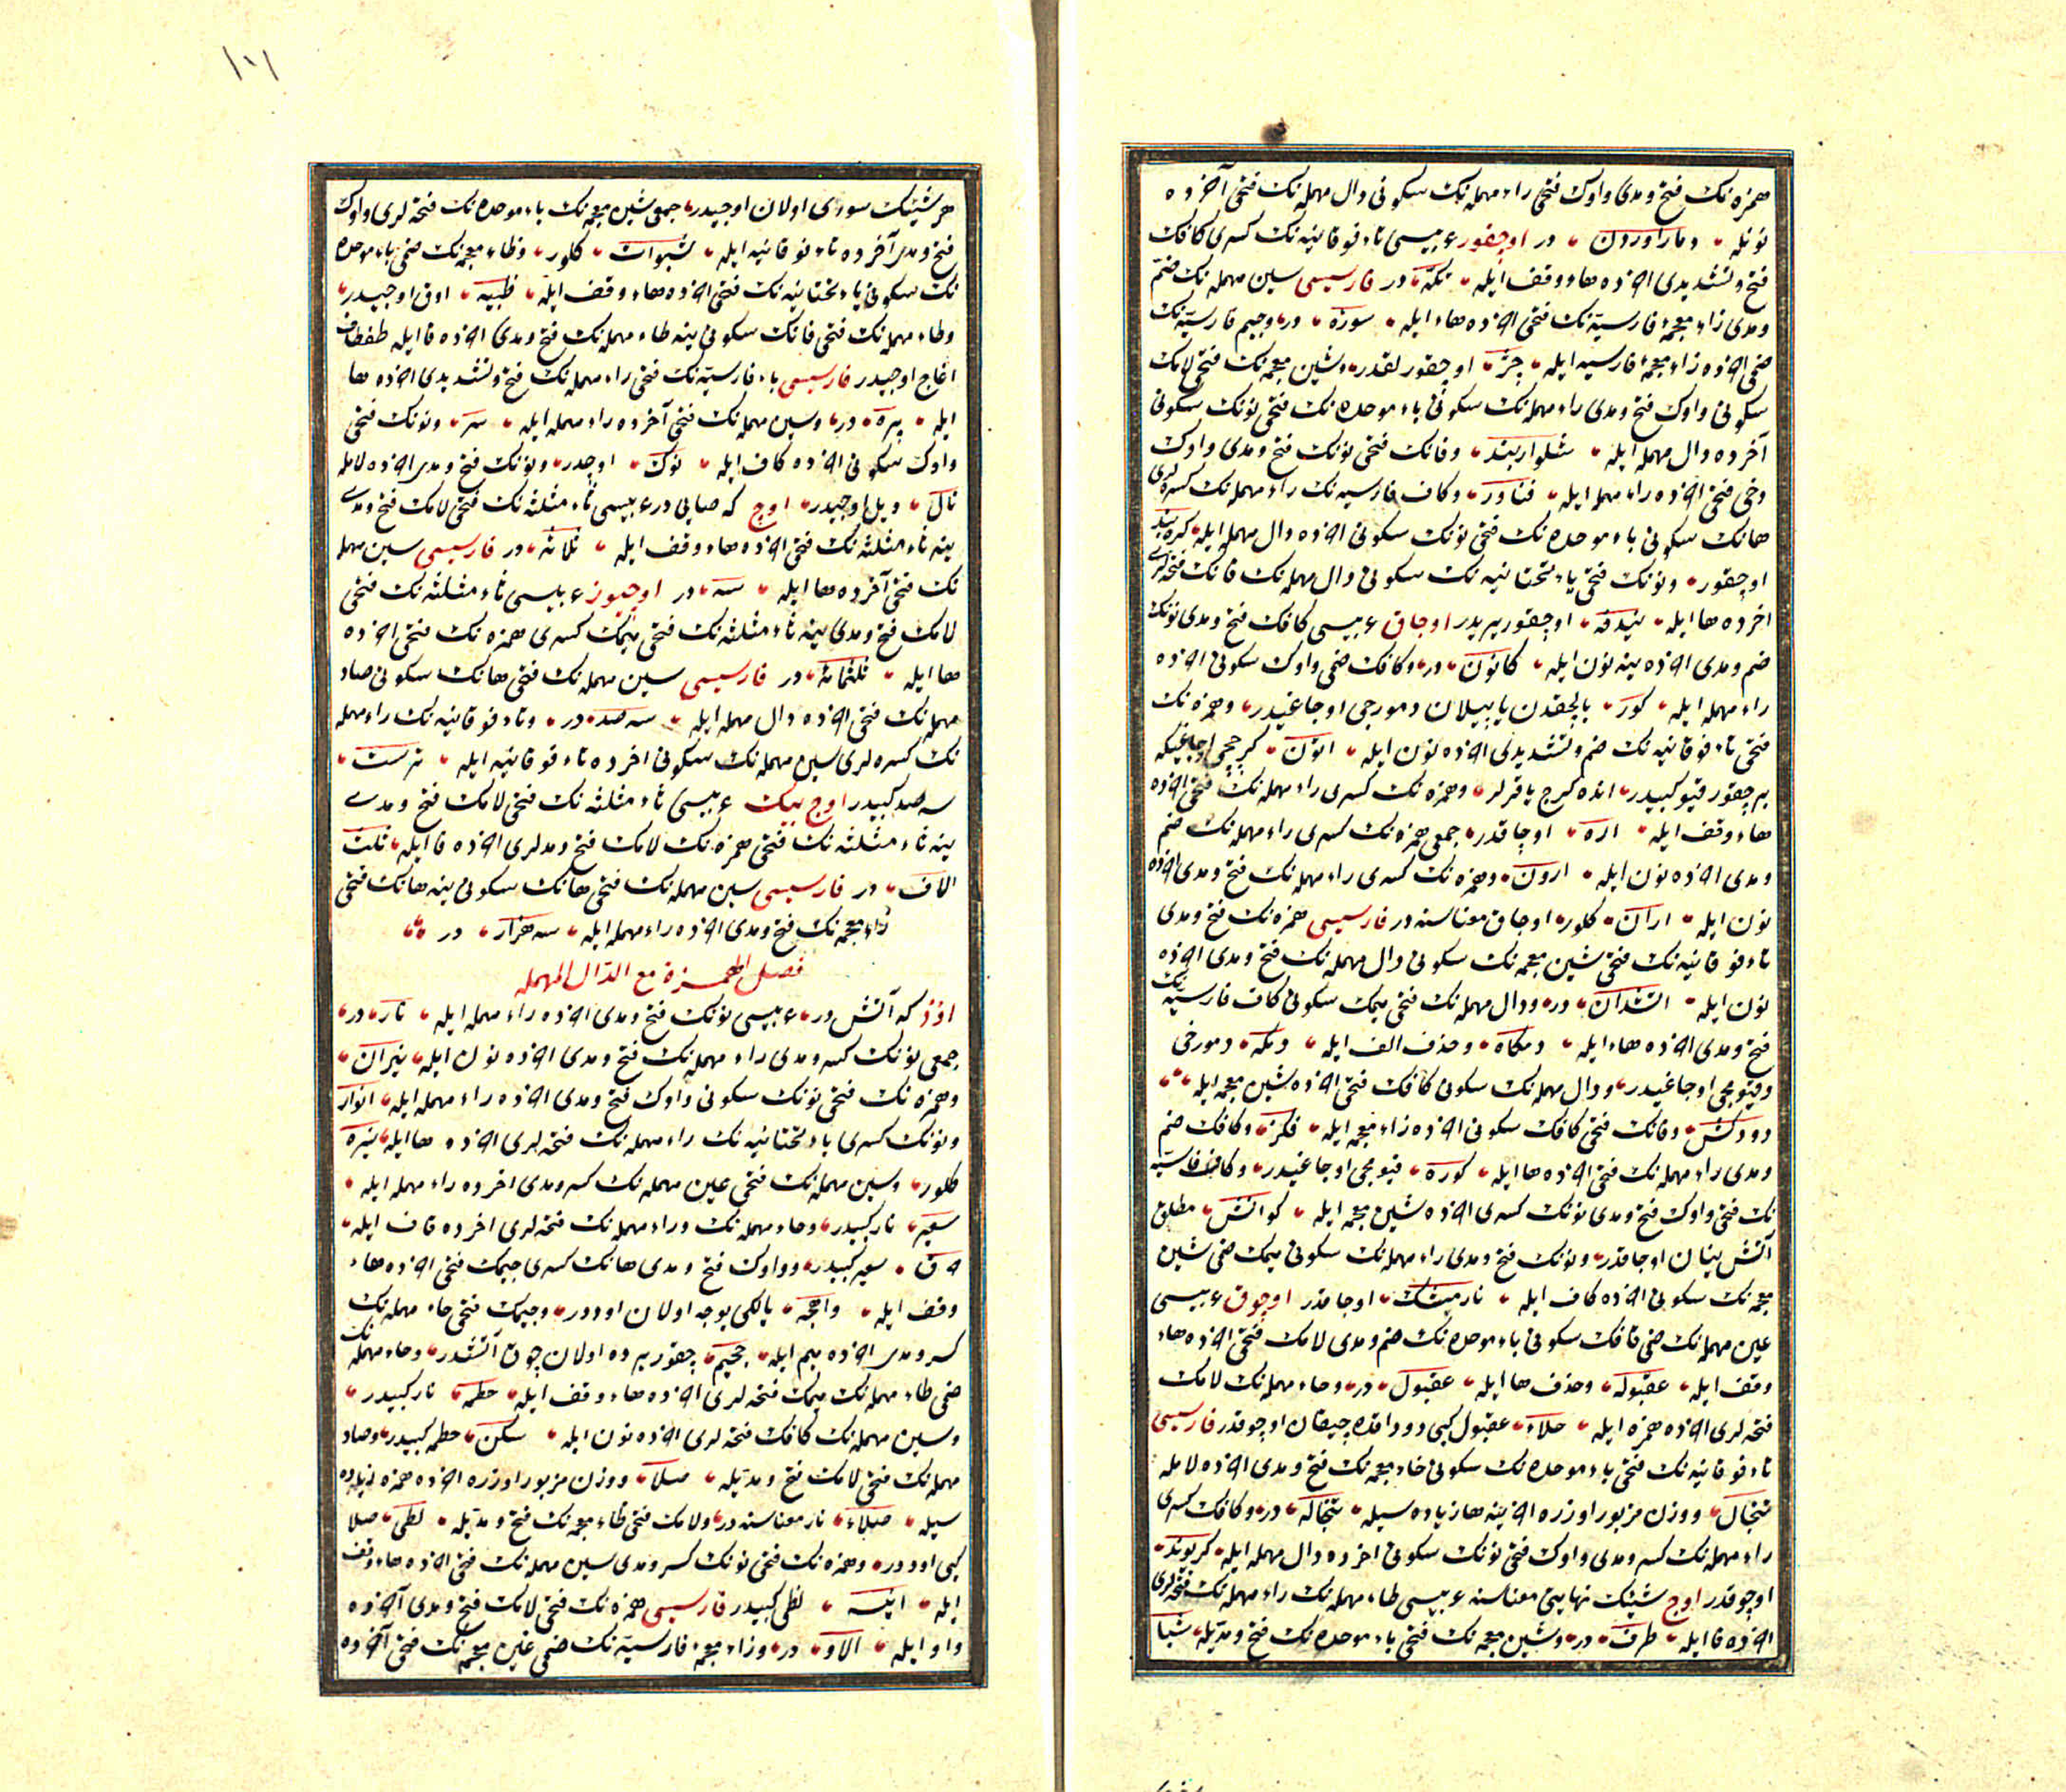 همزه نك فتح و مدى واوك فتحى راء مهمله نك سكونى دال مهمله نك فتحى آخرده
نونله دمار اوردن در اوچقور عربيسى تاء فوقانيه نك كسرى كافك
فتح و تشديدى اخرده هاء وقف ايله تكّه در فارسيسى سين مهمله نك ضمّ
و مدى زاء معجمهٔ فارسيّه نك فتحى اخرده هاء ايله سوزه در و جيم فارسيّه نك
ضمى اخرده زاء معجمهٔ فارسيه ايله جز اوچقور لقدر و شين معجمه نك فتحى لامك
سكونى واوك فتح و مدى راء مهمله نك سكونى باء موحده نك فتحى نونك سكونى
آخرده دال مهمله ايله شلواربند و فانك فتحى نونك فتح و مدى واوك
دخى فتحى اخرده راء مهمله ايله فناور و كاف فارسيه نك راء مهمله نك كسره لرى
هانك سكونى باء موحده نك فتحى نونك سكونى اخرده دال مهمله ايله كره بند
اوچقور و نونك فتحى ياء تحتانيه نك سكونى دال مهمله نك فانك فتحه لرى
اخرده ها ايله نيدفه اوچقور يريدر اوجاق عربيسى كافك فتح و مدى نونك
ضم و مدى اخرده ينه نون ايله كانون در و كافك ضمى واوك سكونى اخرده
راء مهمله ايله كور بالچقدن ياپيلان دمورجى اوجاغيدر و همزه نك
فتحى تاء فوقانيه نك ضم و تشديدى اخرده نون ايله اتون كرجى اوجاغيكه
بر چقور قيو كبيدر انده كرج ياقرلر و همزه نك كسرى راء مهمله نك فتحى اخرده
هاء وقف ايله اره اوجاقدر جمعى همزه نك كسرى راء مهمله نك ضم
و مدى اخرده نون ايله ارون و همزه نك كسرى راء مهمله نك فتح و مدى اخرده
نون ايله اران كلور اوجاق معناسنه در فارسيسى همزه نك فتح و مدى
تاء فوقانيه نك فتحى شين معجمه نك سكونى دال مهمله نك فتح و مدى اخرده
نون ايله اتشدان در و دال مهمله نك فتحى ميمك سكونى كاف فارسيّه نك
فتح و مدى اخرده هاء ايله دمكاه و حذف الف ايله دمكه دمورجى
و قيومجى اوجاغيدر و دال مهمله نك سكونى كافك فتحى اخرده شين معجمه ايله
دودكش و فانك فتحى كافك سكونى اخرده زاء معجمه ايله فكز و كافك ضم
و مدى راء مهمله نك فتحى اخرده ها ايله كوره قيومجى اوجاغيدر و كاف فارسيّه
نك فتحى واوك فتح و مدى نونك كسرى اخرده شين معجمه ايله كوانش مطلق
آتش ينان اوجاقدر و نونك فتح و مدى راء مهمله نك سكونى ميمك ضمى شين
معجمه نك سكونى اخرده كاف ايله نارمشك اوجاقدر اوجوق عربيسى
عين مهمله نك ضمى قافك سكونى باء موحده نك ضم و مدى لامك فتحى اخرده هاء
وقف ايله عقبوله و حذف ها ايله عقبول در و حاء مهمله نك لامك
فتحه لرى اخرده همزه ايله حلاء عقبول كبى دوداقده چيقان اوجوقدر فارسيسى
تاء فوقانيه نك فتحى باء موحده نك سكونى خاء معجمه نك فتح و مدى اخرده لامله
تبخال و وزن مزبور اوزره اخرينه ها زياده سيله تبخاله در و كافك كسرى
راء مهمله نك كسر و مدى واوك فتحى نونك سكونى اخرده دال مهمله ايله كريوند
اوجوقدر اوج شيئك نهايتى معناسنه عربيسى طاء مهمله نك راء مهمله نك فتحه لرى
اخرده فا ايله طرف در و شين معجمه نك فتحى باء موحده نك فتح و مديله شبا
١٠١
هر شيئك سورى اولان اوجيدر جمعى شين معجمه نك باء موحده نك فتحه لرى واوك
فتح و مدى آخرده تاء فوقانيه ايله شبوات كلور و ظاء معجمه نك ضمى باء موحده
نك سكونى ياء تحتانيه نك فتحى اخرده هاء وقف ايله ظبيه اوق اوجيدر
و طاء مهمله نك فتحى فانك سكونى ينه طاء مهمله نك فتح و مدى اخرده فا ايله طفطاف
اغاج اوجيدر فارسيسى باء فارسيّه نك فتحى راء مهمله نك فتح و تشديدى اخرده ها
ايله پره در و سين مهمله نك فتحى آخرده راء مهمله ايله سر و نونك فتحى
واوك سكونى اخرده كاف ايله نوك اوجدر و نونك فتح و مدى اخرده لامله
نال و يل اوجيدر اوج كه صاييدر عربيسى ثاء مثلثه نك فتحى لامك فتح و مدى
ينه ثاء مثلثه نك فتحى اخرده هاء وقف ايله ثلاثه در فارسيسى سين مهمله
نك فتحى آخرده ها ايله سه در اوچيوز عربيسى ثاء مثلثه نك فتحى
لامك فتح و مدى ينه ثاء مثلثه نك فتحى ميمك كسرى همزه نك فتحى اخرده
ها ايله ثلثمائه در فارسيسى سين مهمله نك فتحى هانك سكونى صاد
مهمله نك فتحى اخرده دال مهمله ايله سه صد در و تاء فوقانيه نك راء مهمله
نك كسره لرى سين مهمله نك سكونى اخرده تاء فوقانيه ايله ترست
سه صد كبيدر اوچ بيك عربيسى ثاء مثلثه نك فتحى لامك فتح و مدى
ينه ثاء مثلثه نك فتحى همزه نك لامك فتح و مدلرى اخرده فا ايله ثلث
الاف در فارسيسى سين مهمله نك فتحى هانك سكونى ينه هانك فتحى
زاء معجمه نك فتح و مدى اخرده راء مهمله ايله سه هزار در
فصل الهمزة مع الدّال المهمله
اود كه آتش در عربيسى نونك فتح و مدى اخرده راء مهمله ايله نار در
جمعى نونك كسر و مدى راء مهمله نك فتح و مدى اخرده نون ايله نيران
و همزه نك فتحى نونك سكونى واوك فتح و مدى اخرده راء مهمله ايله انوار
و نونك كسرى ياء تحتانيه نك راء مهمله نك فتحه لرى اخرده ها ايله نيره
كلور و سين مهمله نك فتحى عين مهمله نك كسر و مدى اخرده راء مهمله ايله
سعير نار كبيدر و حاء مهمله نك و راء مهمله نك فتحه لرى اخرده قاف ايله
حرق سعير كبيدر و واوك فتح و مدى هانك كسرى جيمك فتحى اخرده هاء
وقف ايله واهجه يالكى يوجه اولان اوددر و جيمك فتحى حاء مهمله نك
كسر و مدى اخرده ميم ايله جحيم چقور يرده اولان چوق آتشدر و حاء مهمله نك
ضمى طاء مهمله نك ميمك فتحه لرى اخرده هاء وقف ايله حطمه نار كبيدر
و سين مهمله نك كافك فتحه لرى اخرده نون ايله سكن حطمه كبيدر و صاد
مهمله نك فتحى لامك فتح و مديله صلا و وزن مزبور اوزره اخرده همزه زياده
سيله صلاء نار معناسنه در و لامك فتحى ظاء معجمه نك فتح و مديله لظى صلا
كبى اوددر و همزه نك فتحى نونك كسر و مدى سين مهمله نك فتحى اخرده هاء وقف
ايله انيسه لظى كبيدر فارسيسى همزه نك فتحى لامك فتح و مدى آخرده
واو ايله الاو در و زاء معجمهٔ فارسيّه نك ضمى غين معجمه نك فتحى آخرده